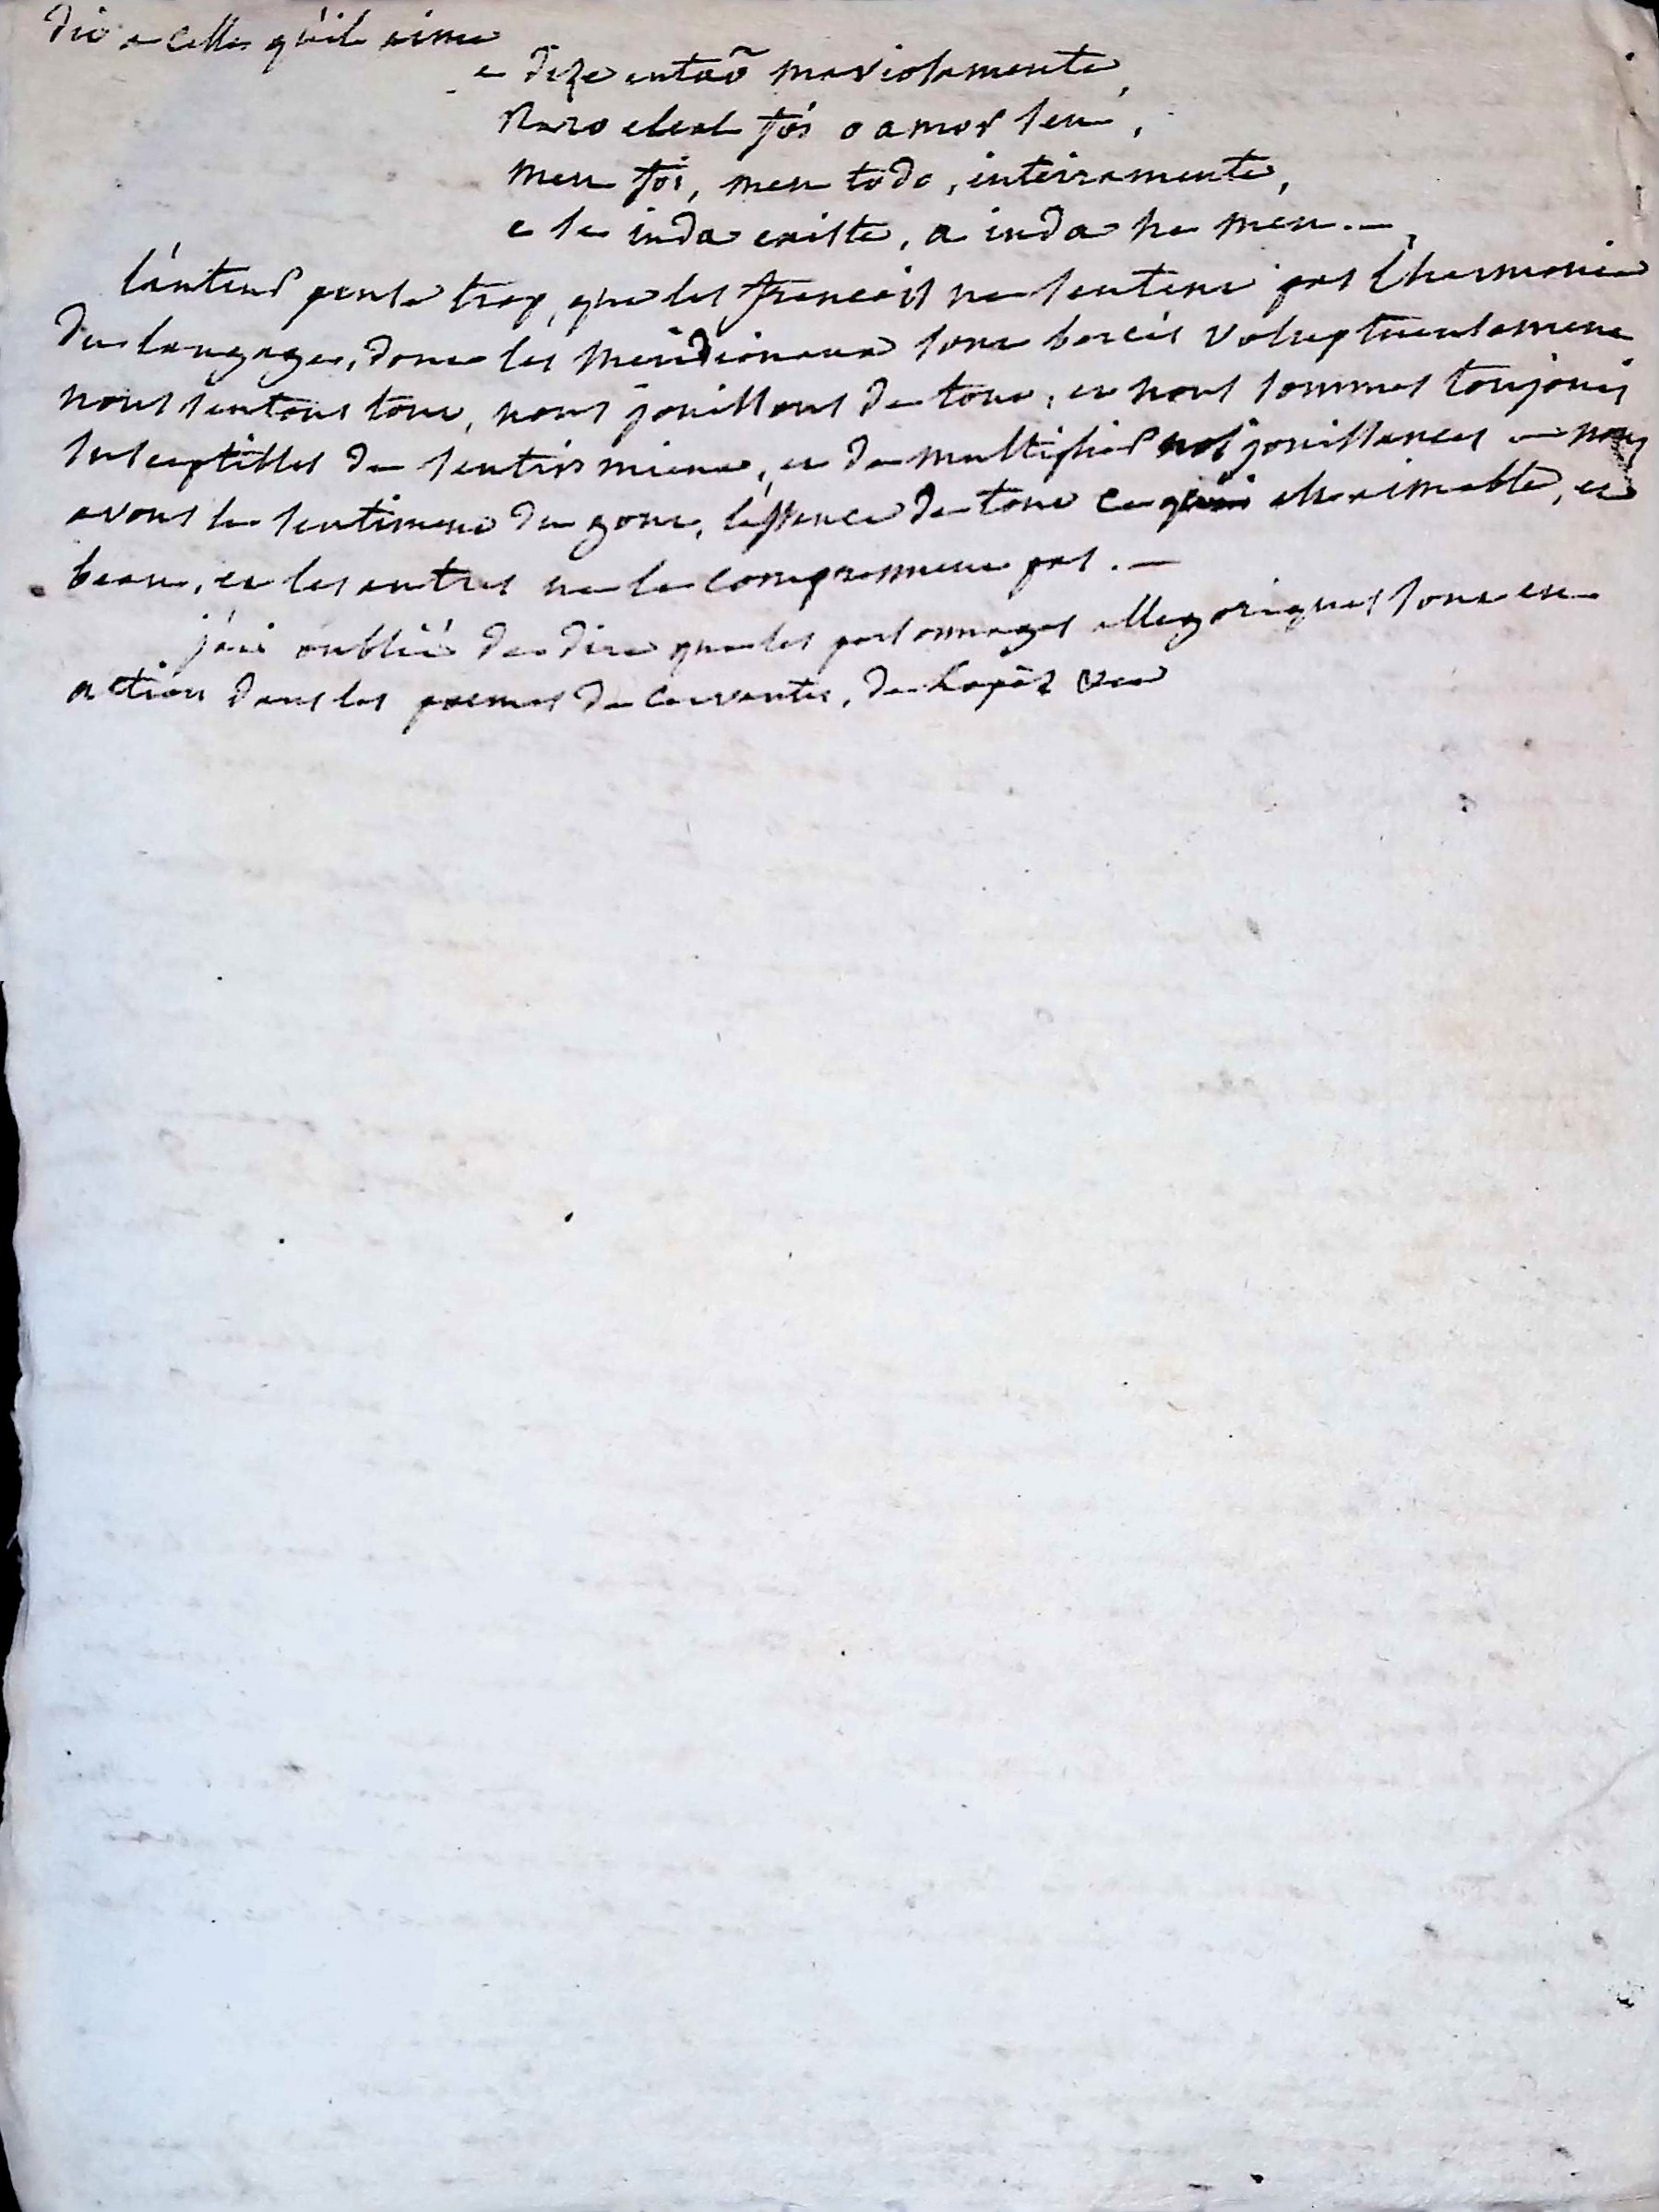 dit a celle qu'il aime
e dize entaõ maviosamente,
Raro e leal foi o amor seu,
meu foi, meu todo, inteiramente,
e se inda existe, a inda he meu.—
l'auteur pense trop, que les francais ne sentent pas l'harmonie
du langage, dont les meridionaux sont bercés voluptueusement
nous sentons tout, nous jouissons de tout, et nous sommes toujours
susceptibles de sentir mieux, et de multiplier nos jouissances — nous
avons le sentiment du gout, l'essence de tout ce qui est aimable, et
beau, et les autres ne le comprennent pas.—
j'ai oublié de dire que les personnages allegoriques sont en
action dans les poemes de cervantes, de Lopèz